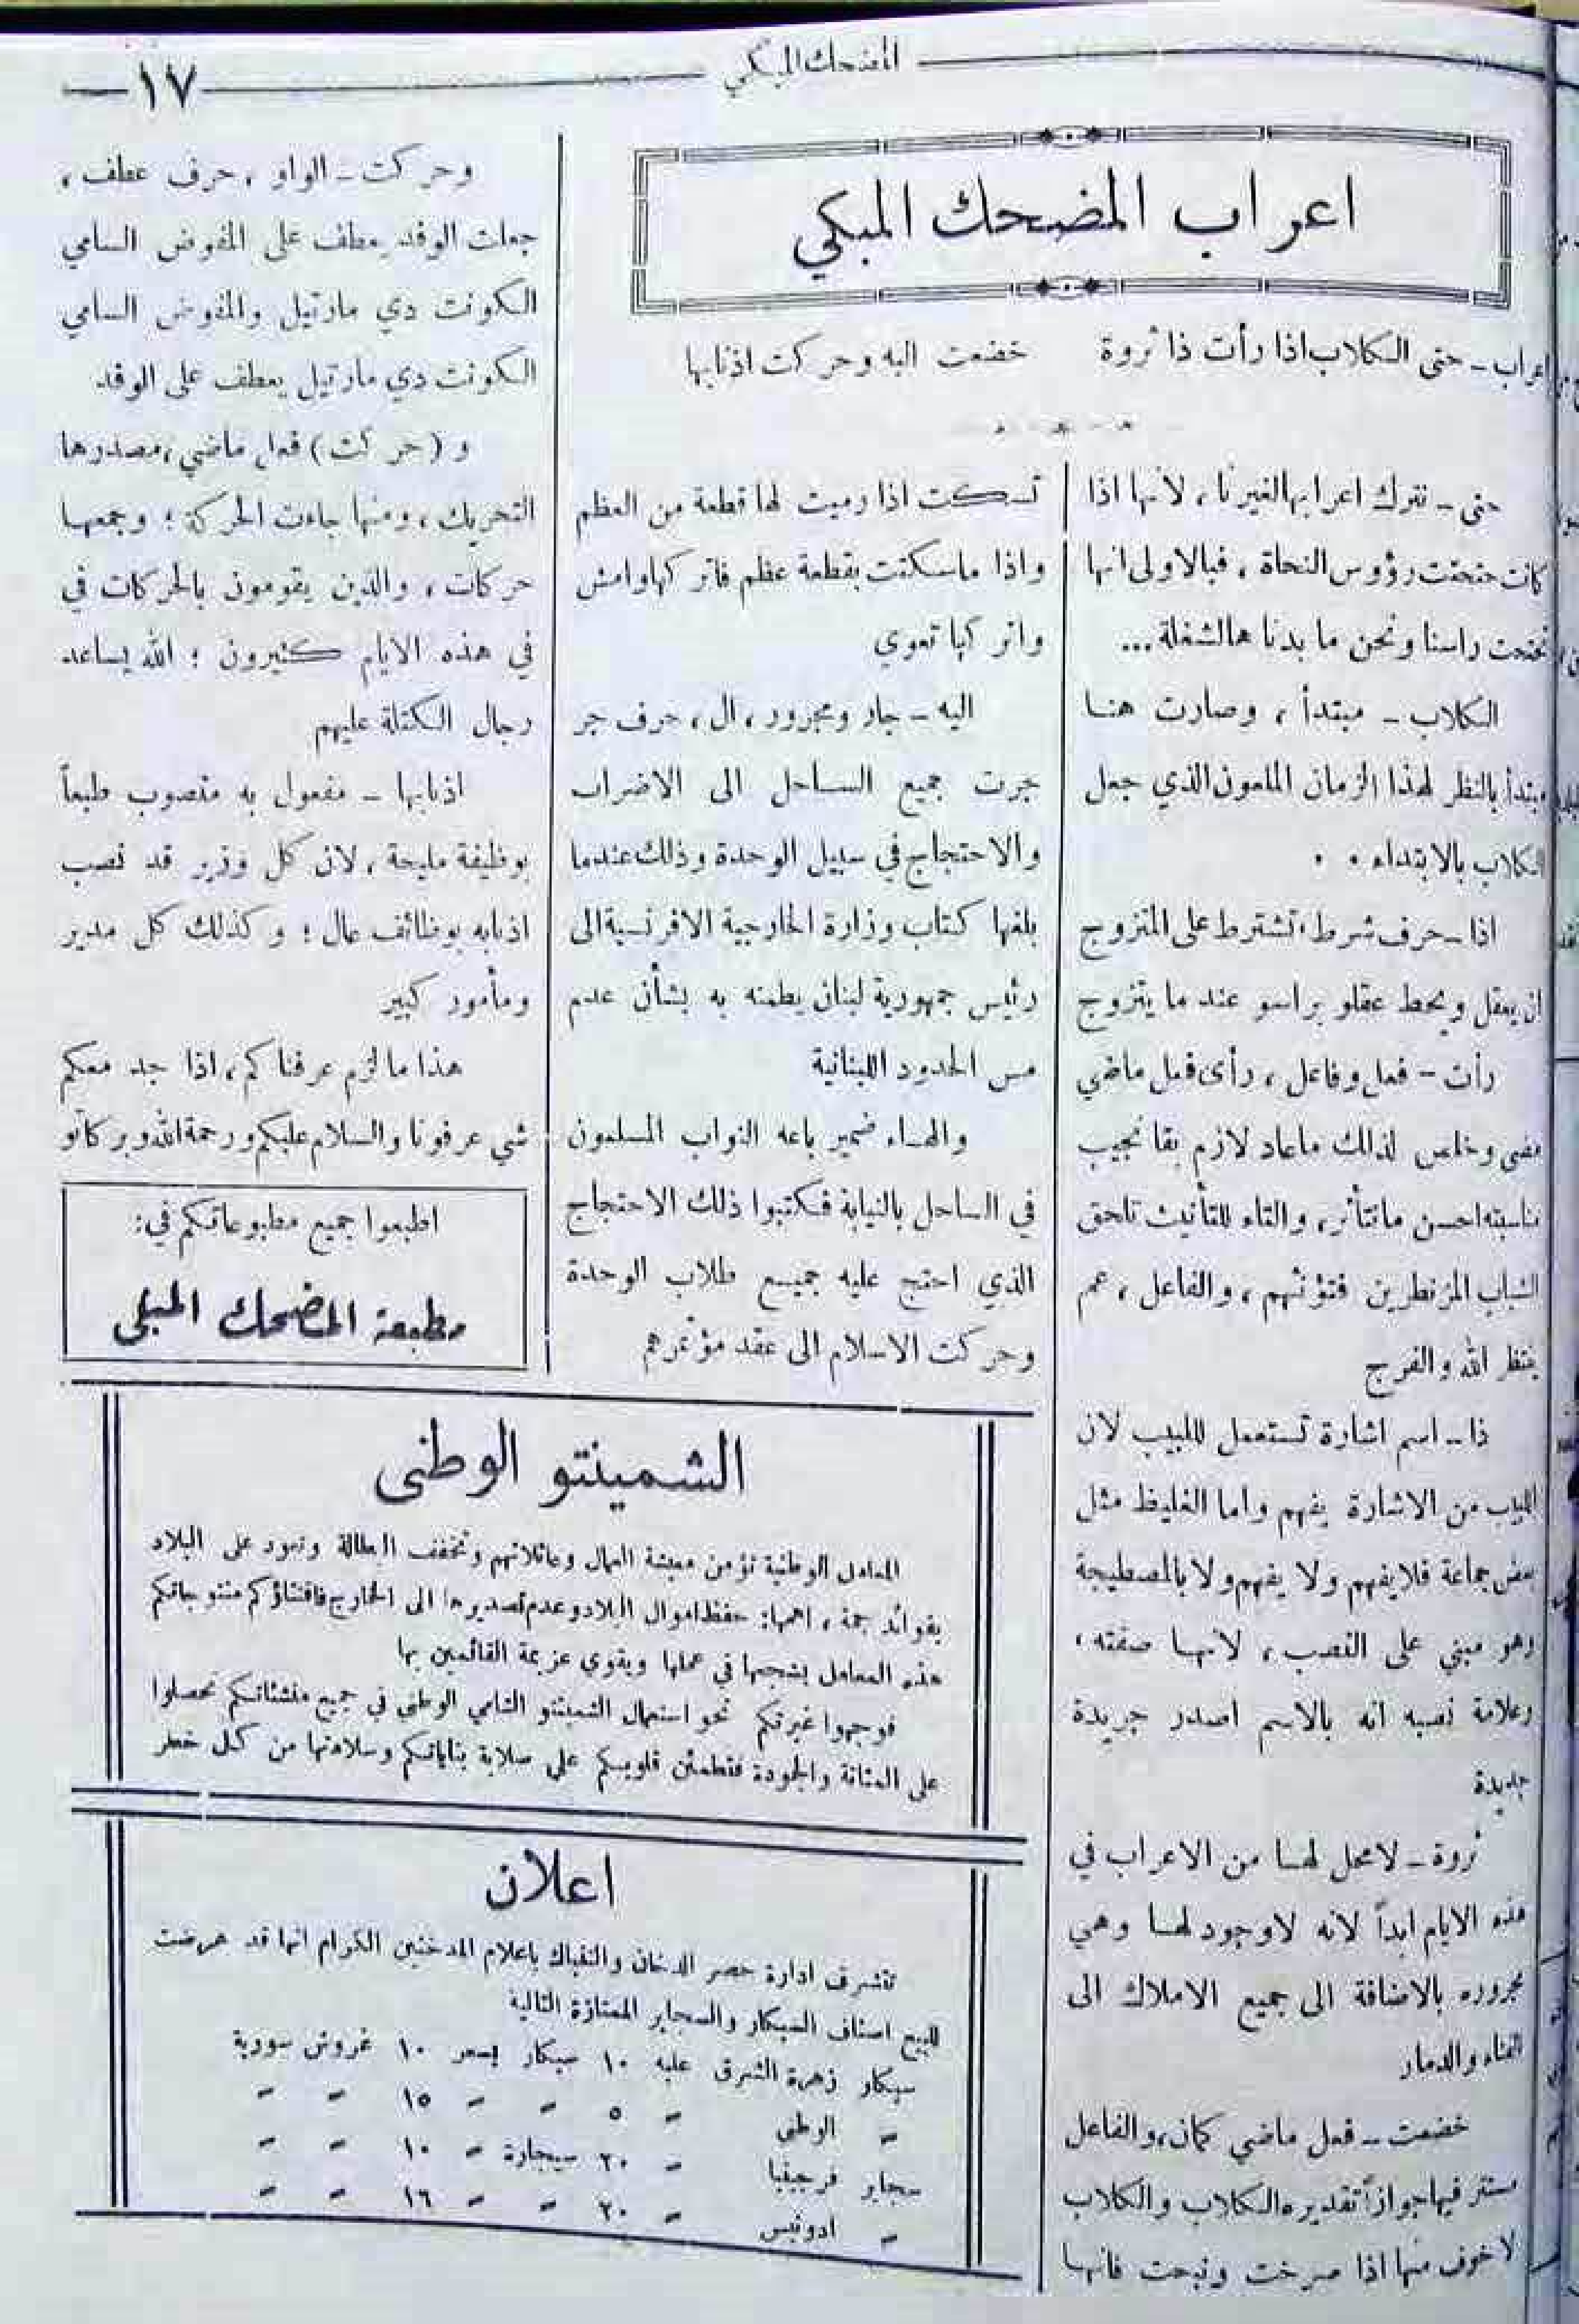 المضحك المبكي
١٧
اعراب المضحك المبكي
اعراب - حتى الكلاب اذا رأت ذا ثروة خضعت اليه وحركت اذنابها
حتى - نترك اعرابها لغيرنا ، لانها اذا
كانت حتحتت رؤوس النحاة ، فبالاولى انها
تحتحت راسنا ونحن ما بدنا هالشغلة ...
الكلاب - مبتدأ ، وصارت هنا
مبتدأ بالنظر لهذا الزمان الملعون الذي جعل
الكلاب بالابتداء . .
اذا - حرف شرط ، تشترط على المتزوج
ان يعقل ويحط عقلو براسو عند ما يتزوج
رأت - فعل وفاعل ، رأى فعل ماضي
مضى وخلص لذلك ماعاد لازم بقا نجيب
احسن مانتأثر ، والتاء للتأنيث تلحق
الشباب المزنطرين فتؤنثهم ، والفاعل ، عم
ينتظر الله والفرج
ذا - اسم اشارة تستعمل للبيب لان
اللبيب من الاشارة يفهم واما الغليظ مثل
بعض جماعة فلا يفهم ولا يفهم ولا بالمسطيجة
وهو مبني على النصب ، لانها صفته ،
وعلامة نصبه انه بالاسم اصدر جريدة
جديدة
ثروة - لامحل لها من الاعراب في
هذه الايام ابداً لانه لاوجود لها وهي
مجروره بالاضافة الى جميع الاملاك الى
الفناء والدمار
خضعت - فعل ماضي كمان ، والفاعل
مستتر فيها جوازاً تقديره الكلاب والكلاب
لاخوف منها اذا صرخت ونبحت فانها
تسكت اذا رميت لها قطعة من العظم
واذا ماسكتت بقطعة عظم فاتركها وامش
واتركها تعوي
اليه - جار ومجرور ، ال ، حرف جر
جرت جميع الساحل الى الاضراب
والاحتجاج في سبيل الوحدة وذلك عندما
بلغها كتاب وزارة الخارجية الافرنسية الى
رئيس جمهورية لبنان يطمنه به بشأن عدم
مس الحدود اللبنانية
والهاء ضمير باعه النواب المسلمون
في الساحل بالنيابة فكتبوا ذلك الاحتجاج
الذي احتج عليه جميع طلاب الوحدة
وحركت الاسلام الى عقد مؤتمرهم
وحركت - الواو ، حرف عطف ،
جعلت الوفد يعطف على المفوض السامي
الكونت دي مارتيل والمفوض السامي
الكونت دي مارتيل يعطف على الوفد
و (حركت) فعل ماضي ، مصدرها
التحريك ، ومنها جاءت الحركة ؛ وجمعها
حركات ، والذين يقومون بالحركات في
في هذه الايام كثيرون ؛ الله يساعد
رجال الكتلة عليهم
اذنابها - مفعول به منصوب طبعاً
بوظيفة مليحة ، لان كل وزير قد نصب
اذنابه بوظائف عال ؛ وكذلك كل مدير
ومأمور كبير
هذا مالزم عرفناكم ، اذا جد معكم
شي عرفونا والسلام عليكم ورحمة الله وبركاتو
اطبعوا جميع مطبوعاتكم في:
مطبعة المضحك المبكي
الشمينتو الوطني
المعامل الوطنية تؤمن معيشة العمال وعائلاتهم وتخفف البطالة وتعود على البلاد
بفوائد جمة ، اهمها: حفظ اموال البلاد وعدم تصديرها الى الخارج فاقتناؤكم منتوجاتكم
هذه المعامل يشجعها في عملها ويقوي عزيمة القائمين بها
فوجهوا غيرتكم نحو استعمال الشمينتو الشامي الوطني في جميع منشئاتكم تحصلوا
على المتانة والجودة فتطمئن قلوبكم على صلابة بناياتكم وسلامتها من كل خطر
اعلان
تتشرف ادارة حصر الدخان والتنباك باعلام المدخنين الكرام انها قد عرضت
للبيع اصناف السيكار والسجاير الممتازة التالية
سيكار زهرة الشرق علبه ١٠ سيكار بسعر ١٠ غروش سورية
〃 الوطني 〃 ٥ 〃 〃 ١٥ 〃 〃
سجاير فرجينيا 〃 ٢٠ سيجارة 〃 ١٠ 〃 〃
〃 ادونيس 〃 ٢٠ 〃 〃 ١٦ 〃 〃